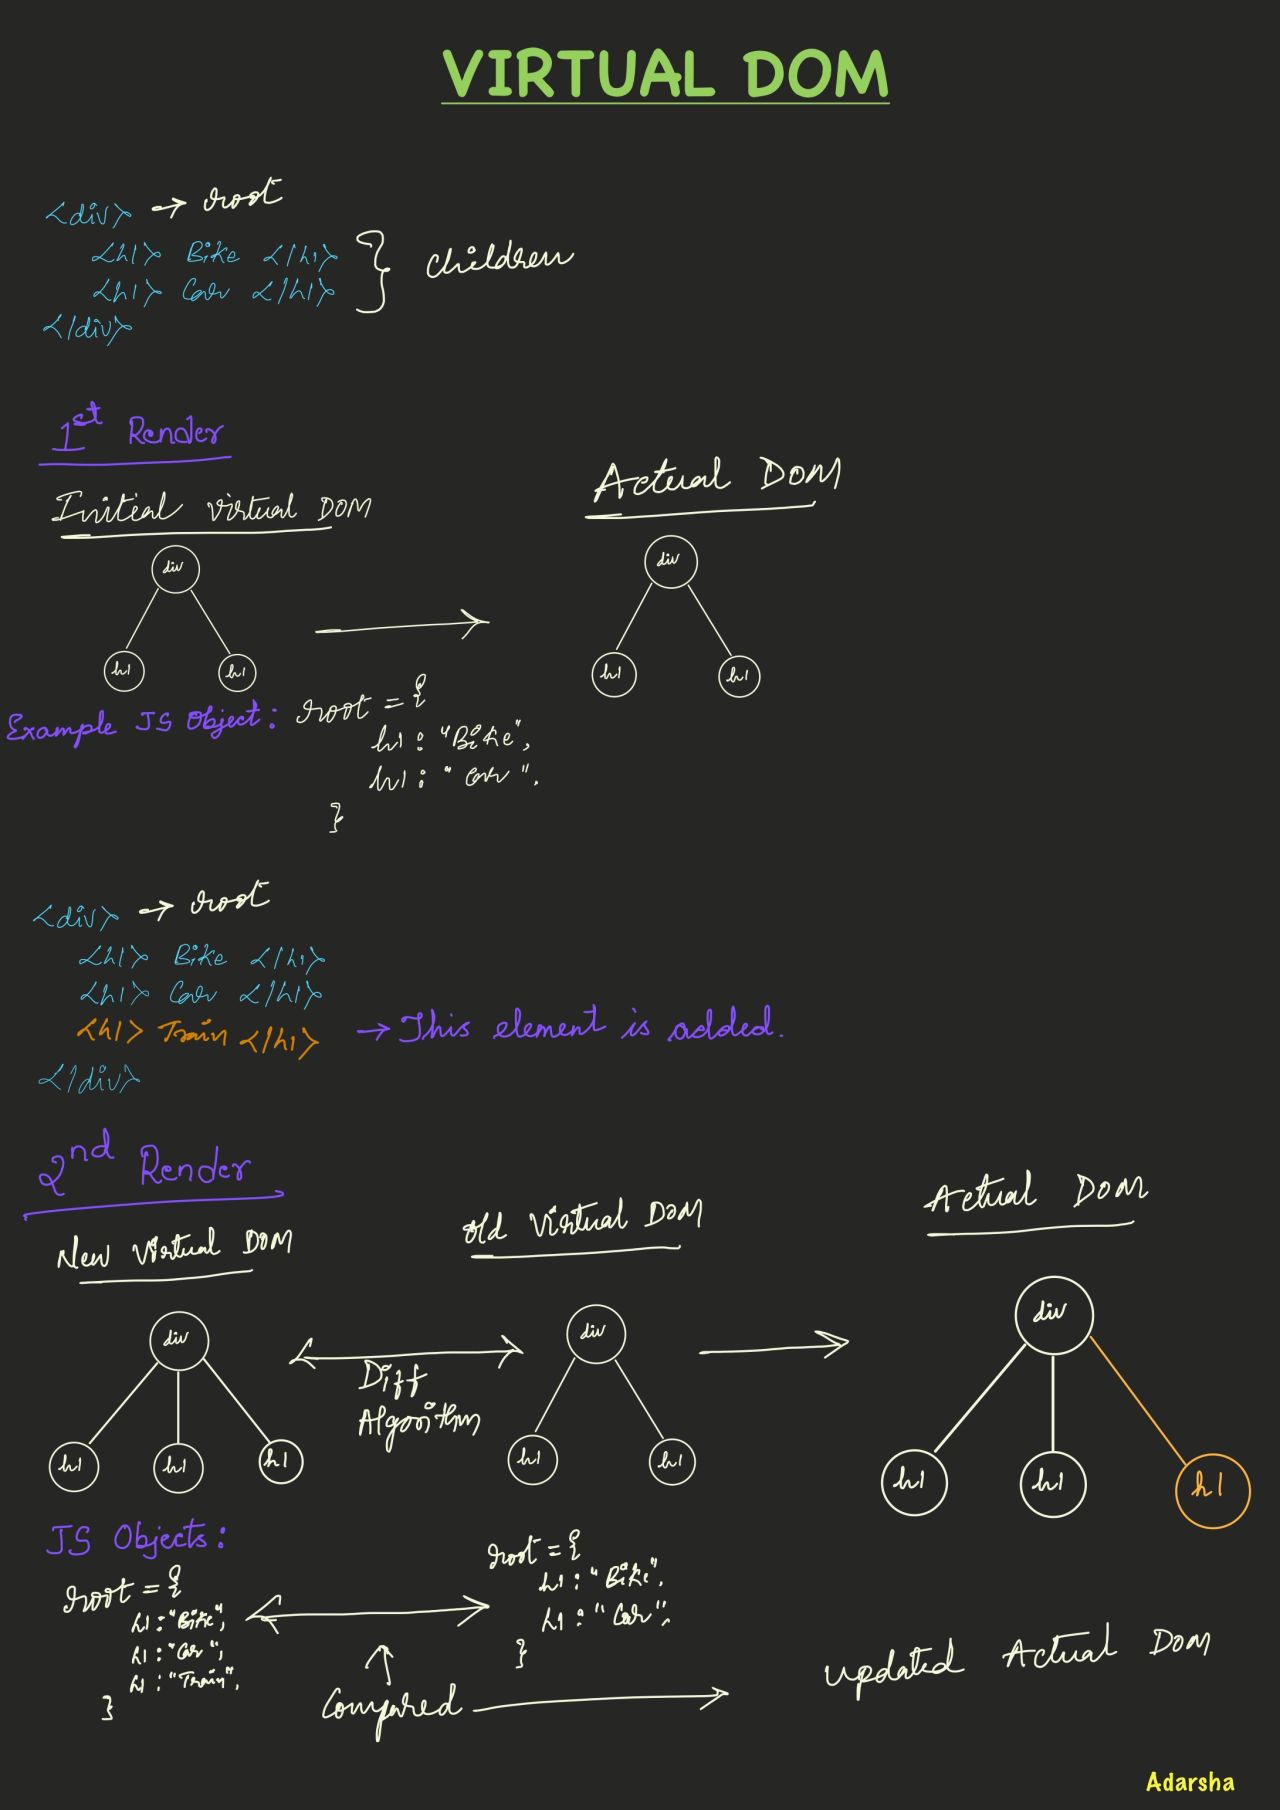 VIRTUAL DOM
<div> → root
<h1> Bike </h1>
<h1> Car </h1>
} children
</div>
1st Render
Initial Virtual DOM
Actual DOM
div
div
h1
h1
h1
h1
Example JS Object: root = {
h1 : "Bike",
h1 : "Car",
}
<div> → root
<h1> Bike </h1>
<h1> Car </h1>
<h1> Train </h1> → This element is added.
</div>
2nd Render
New Virtual DOM
Old Virtual DOM
Actual DOM
div
div
div
Diff
Algorithm
h1
h1
h1
h1
h1
h1
h1
h1
JS Objects:
root = {
h1 : "Bike",
h1 : "Car",
h1 : "Train",
}
root = {
h1 : "Bike",
h1 : "Car",
}
Compared
updated Actual DOM
Adarsha